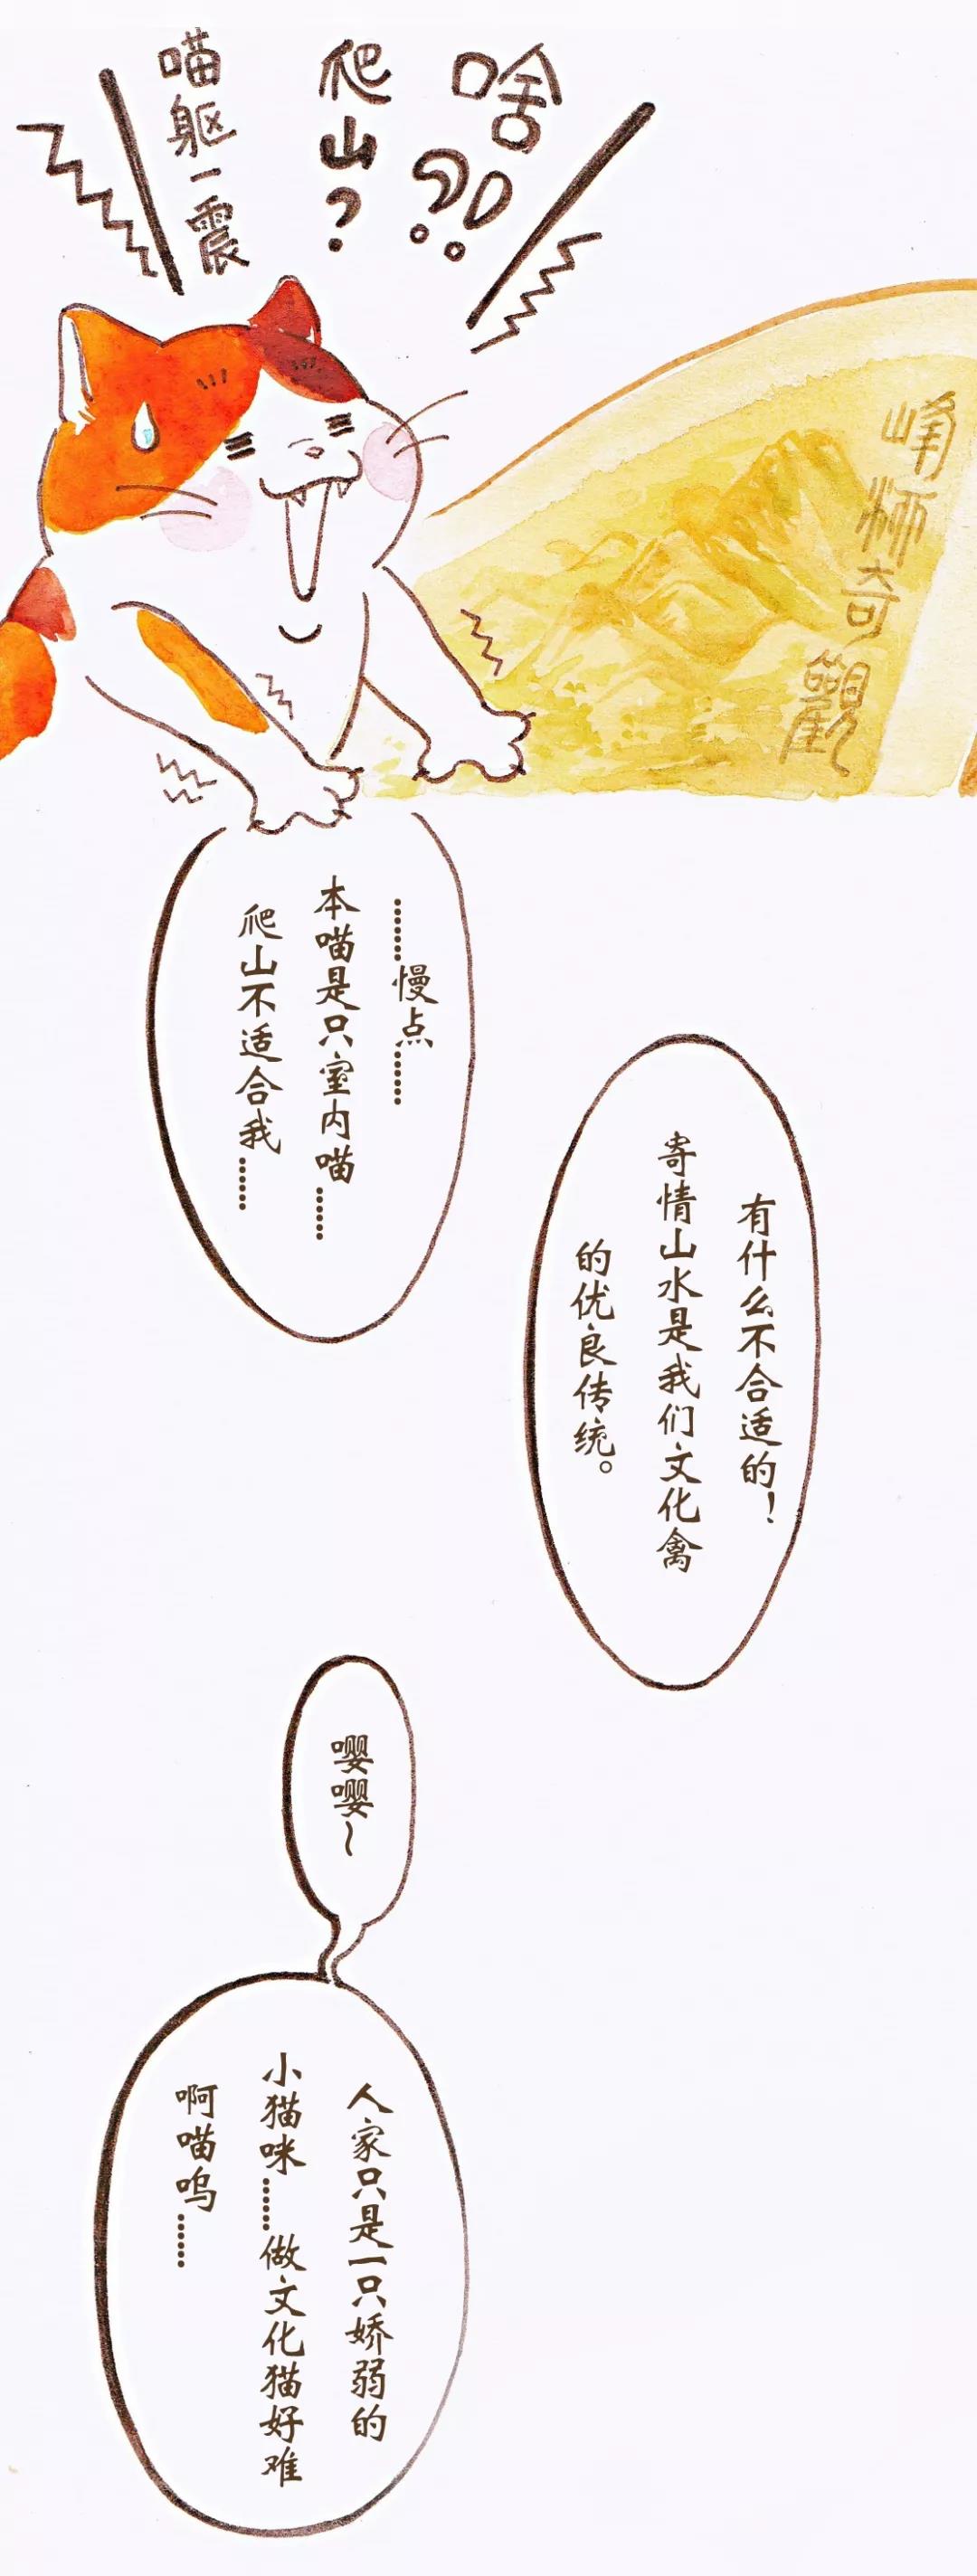 啥??
爬山?
喵躯一震
奇觀
……慢点……
本喵是只室内喵……
爬山不适合我……
有什么不合适的！
寄情山水是我们文化禽
的优良传统。
嘤嘤~
人家只是一只娇弱的
小猫咪……做文化猫好难
啊喵呜……